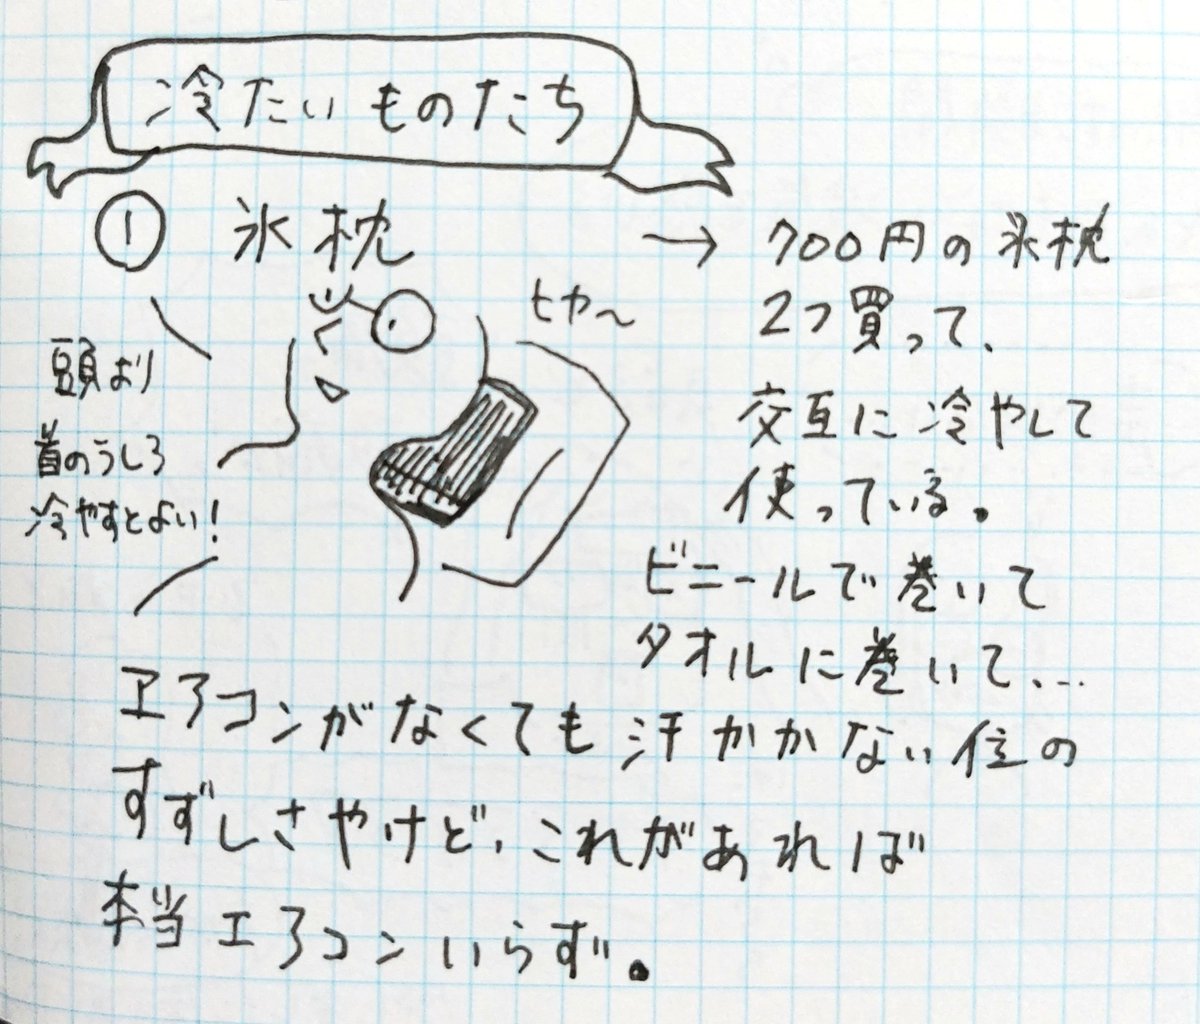 冷たいものたち
① 氷枕
ヒヤ〜
頭より
首のうしろ
冷やすとよい!
→ 700円の氷枕
2つ買って、
交互に冷やして
使っている。
ビニールで巻いて
タオルに巻いて、…
エアコンがなくても汗かかない位の
すずしさやけど、これがあれば
本当エアコンいらず。